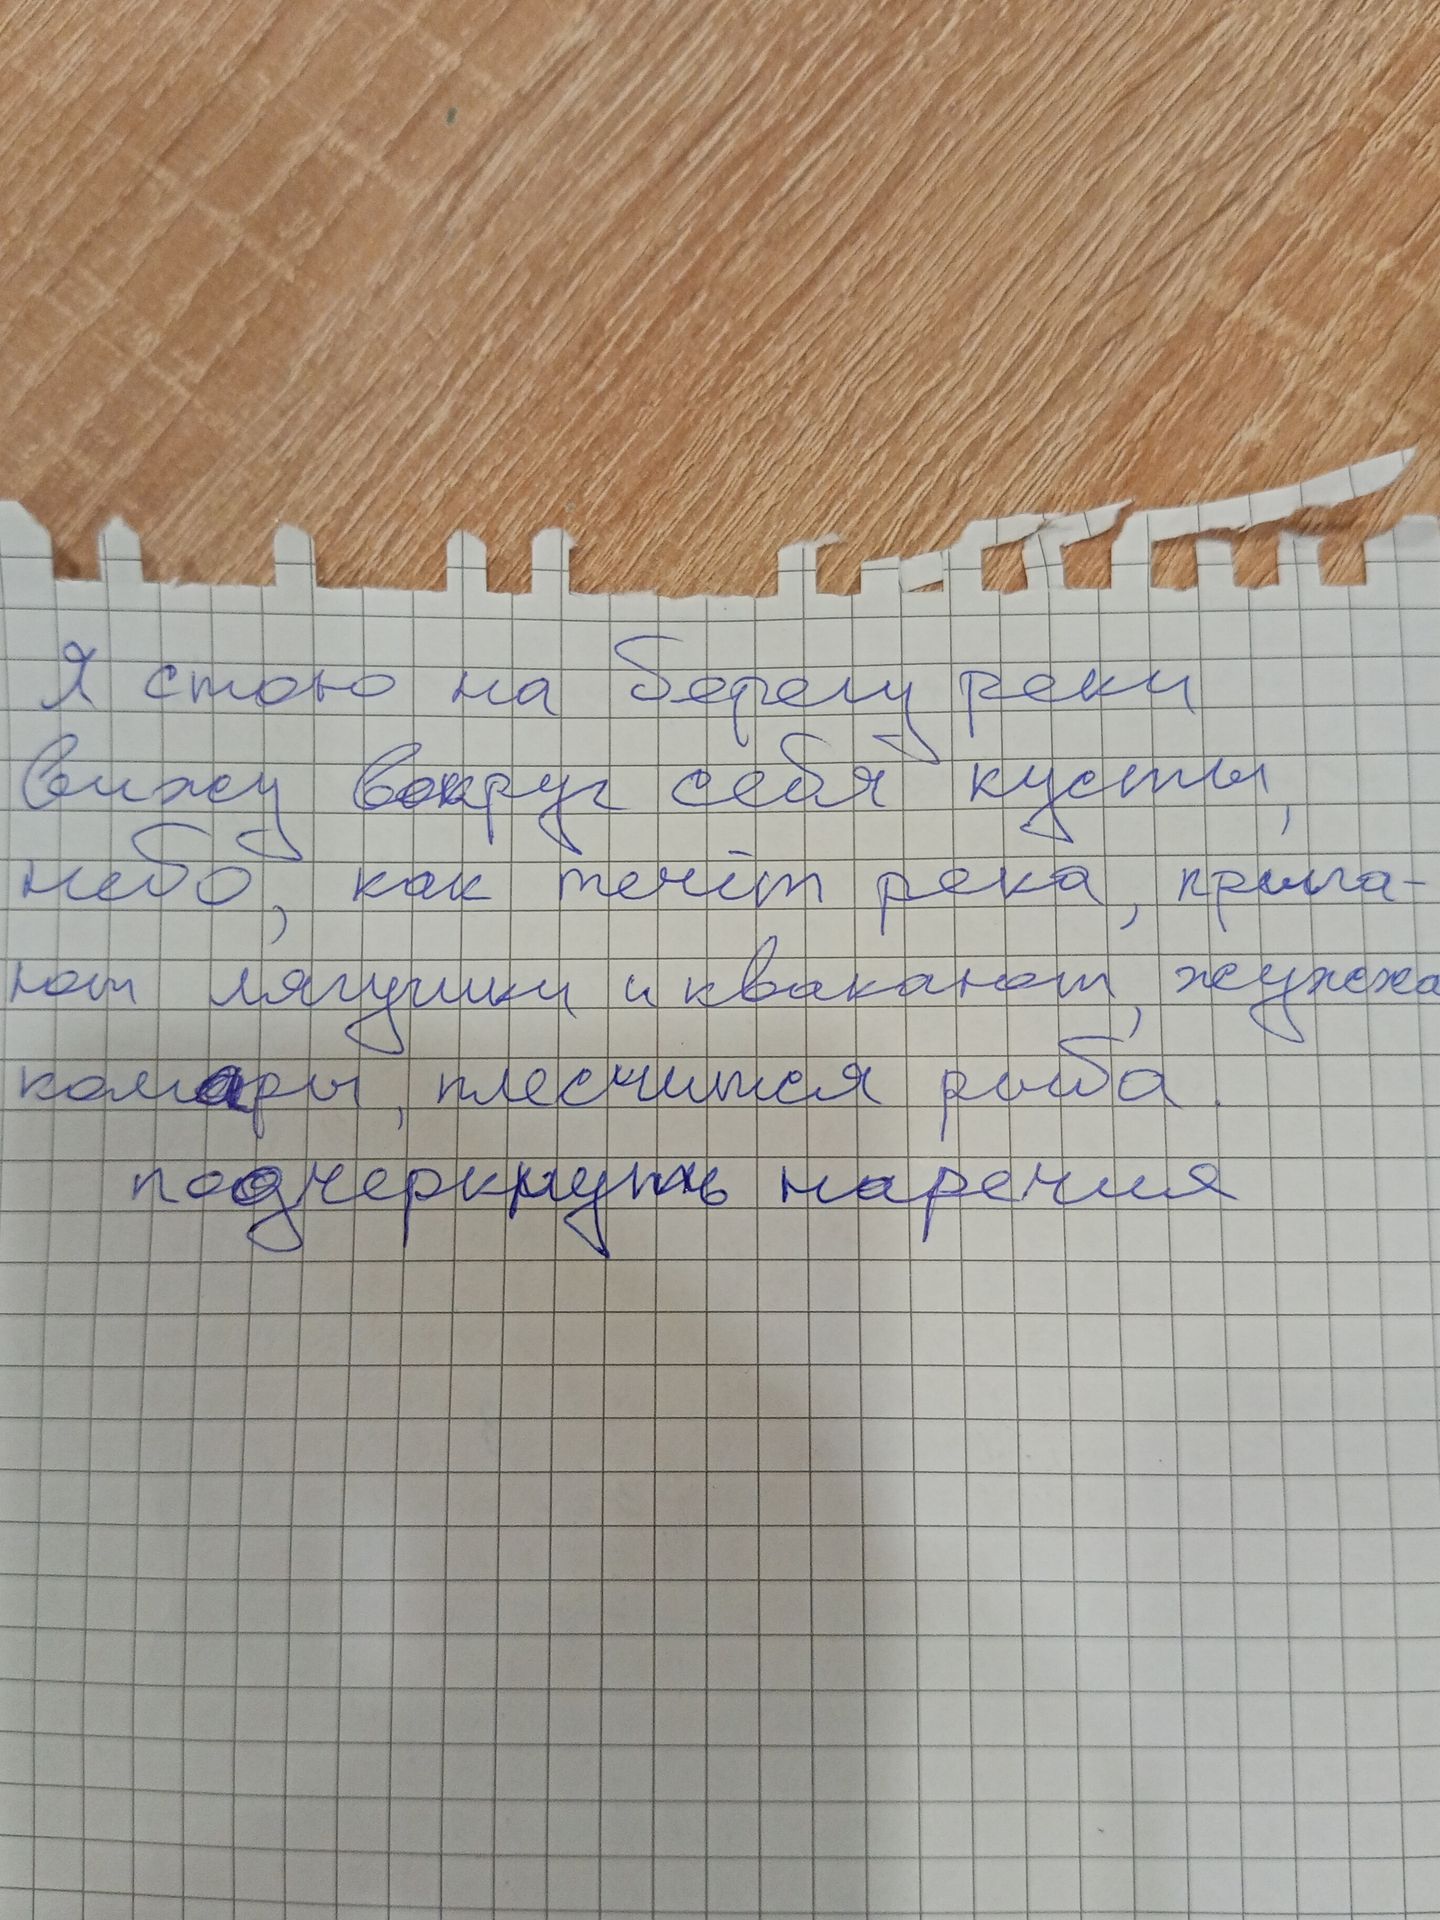 Я стою на берегу реки
вижу вокруг себя кусты,
небо, как течёт река, прыга-
ют лягушки и квакают, жужжа
комары, плесчится рыба.
подчеркнуть наречия